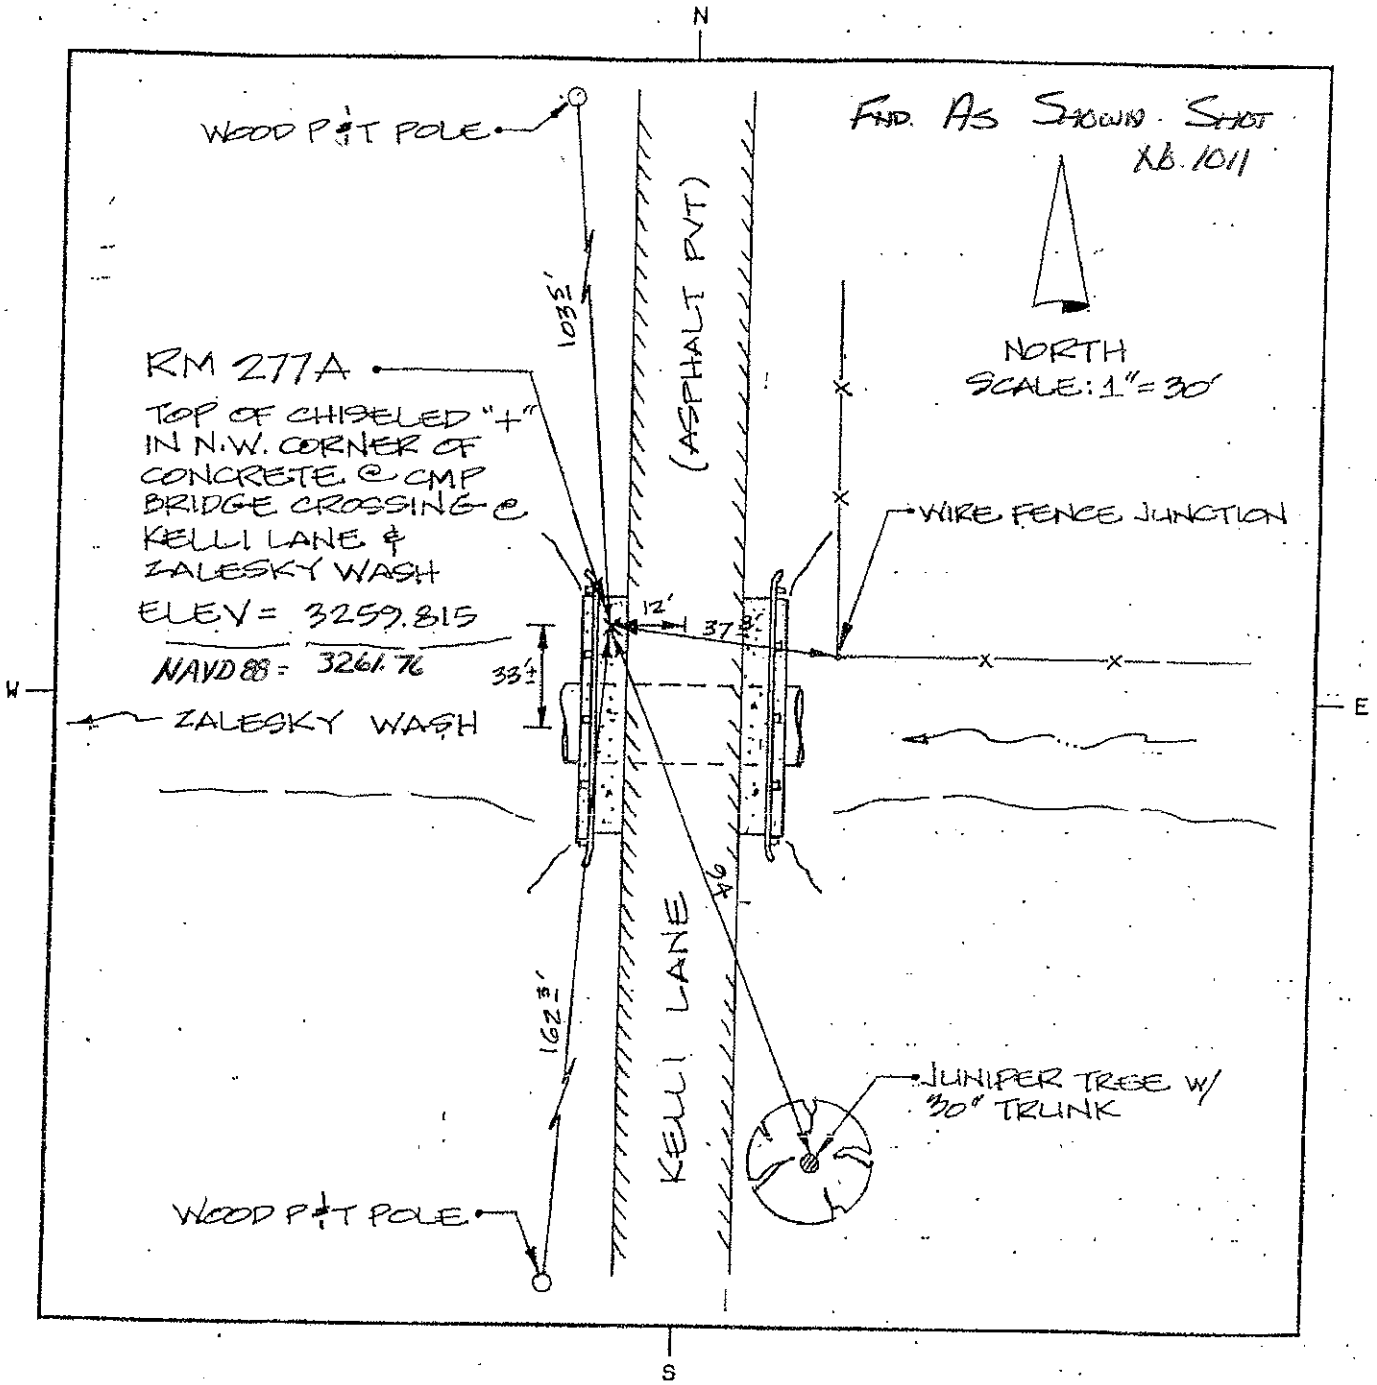 N
WOOD P&T POLE
FND. AS SHOWN. SHOT
103 5'
(ASPHALT PVT)
NORTH
SCALE: 1"=30'
RM 277A
TOP OF CHISELED "+"
IN N.W. CORNER OF
CONCRETE @ CMP
BRIDGE CROSSING @
KELLI LANE &
ZALESKY WASH
ELEV = 3259.815
NAVD 88 = 3261.76
WIRE FENCE JUNCTION
12'
37 3'
33'±
W
E
ZALESKY WASH
KELLI LANE
162 3'
JUNIPER TREE W/
30" TRUNK
WOOD P&T POLE
S